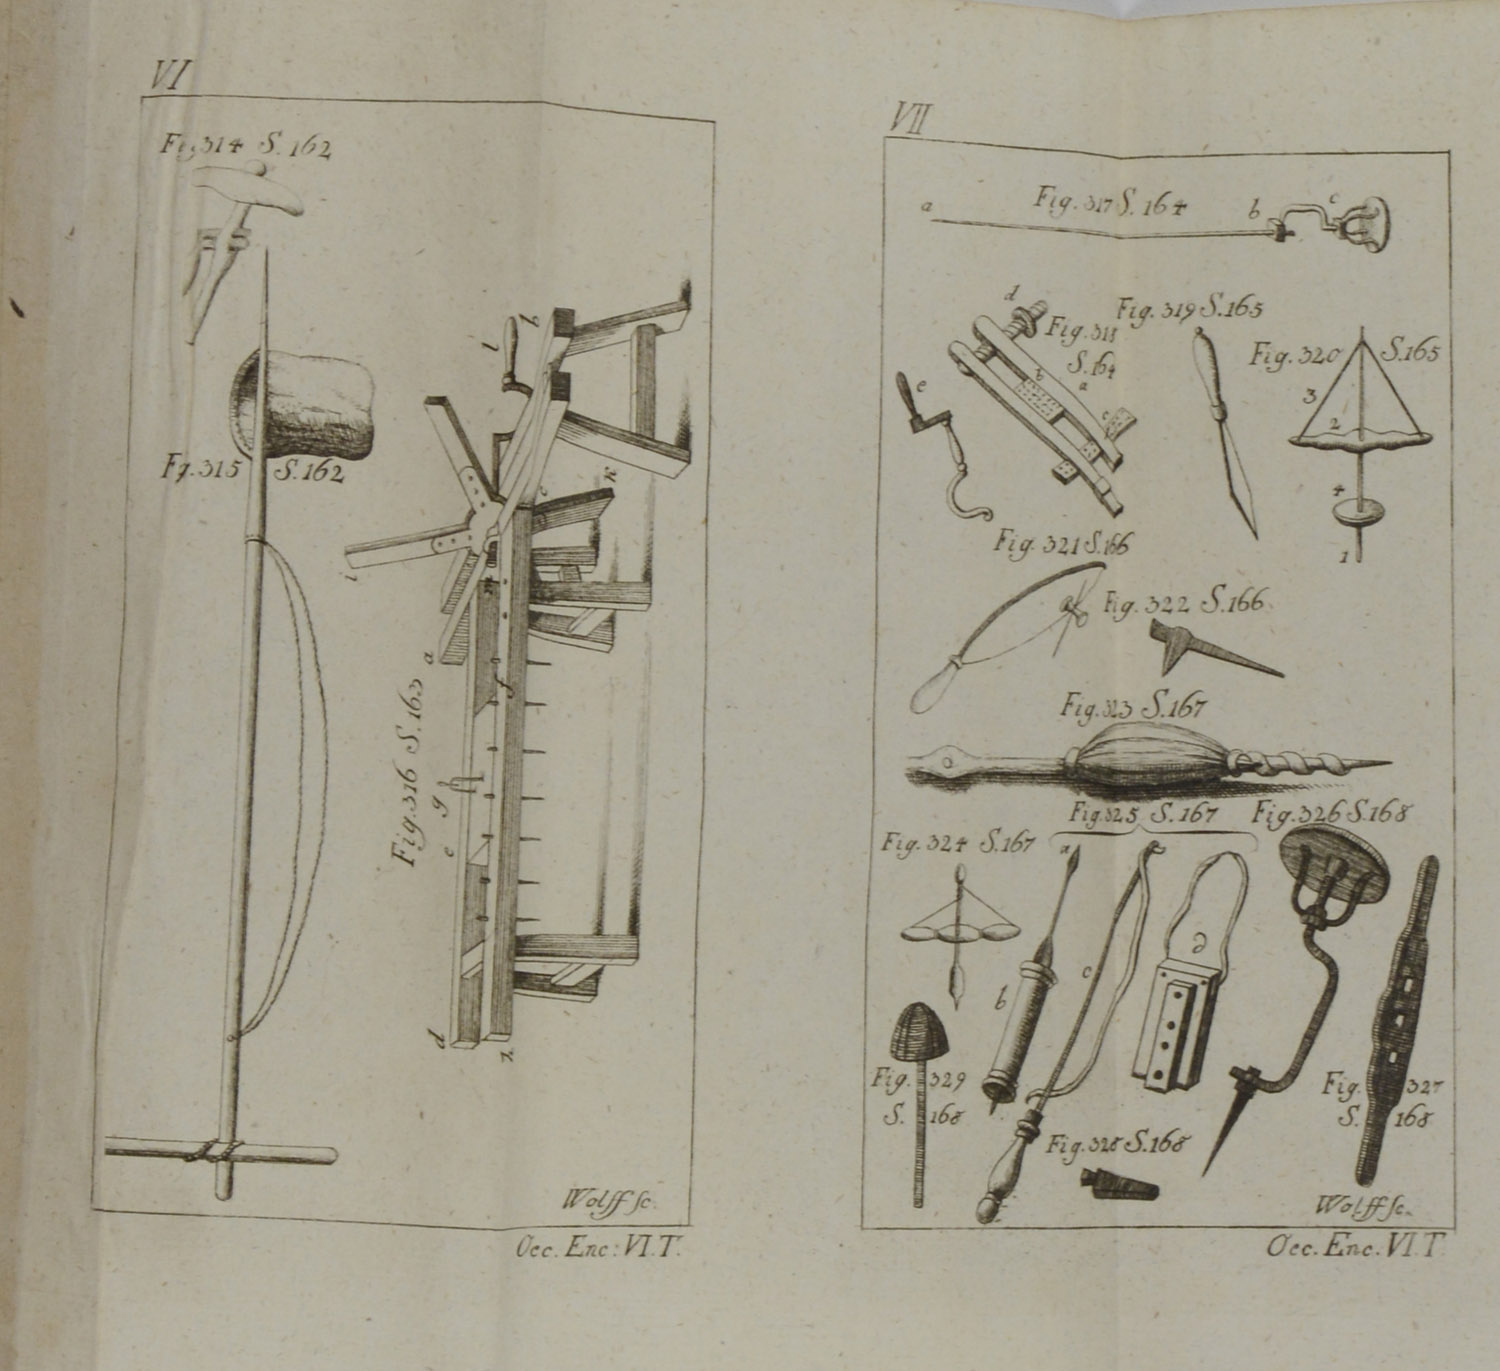 VI
Fig. 314 S. 162
Fg. 315 S. 162
l
b
i
k
c
m
a
f
Fig. 316 S. 163
g
e
d
Wolff sc.
Oec. Enc: VI. T.
VII
Fig. 317 S. 164
a
b
c
d
Fig. 318
S. 164
b
a
c
e
Fig. 319 S. 165
Fig. 320 S. 165
3
2
4
1
Fig. 321 S. 166
Fig. 322 S. 166
Fig. 323 S. 167
Fig. 324 S. 167
Fig. 325 S. 167
a
b
c
d
Fig. 326 S. 168
Fig. 329
S. 168
Fig. 327
S. 168
Fig. 328 S. 168
Wolff sc.
Oec. Enc. VI. T